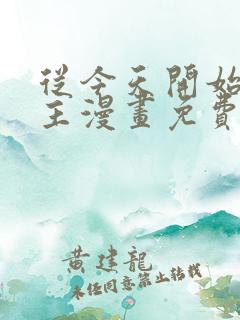 從今天開始
王漫畫免費
黃建龍
未任同意禁止轉載